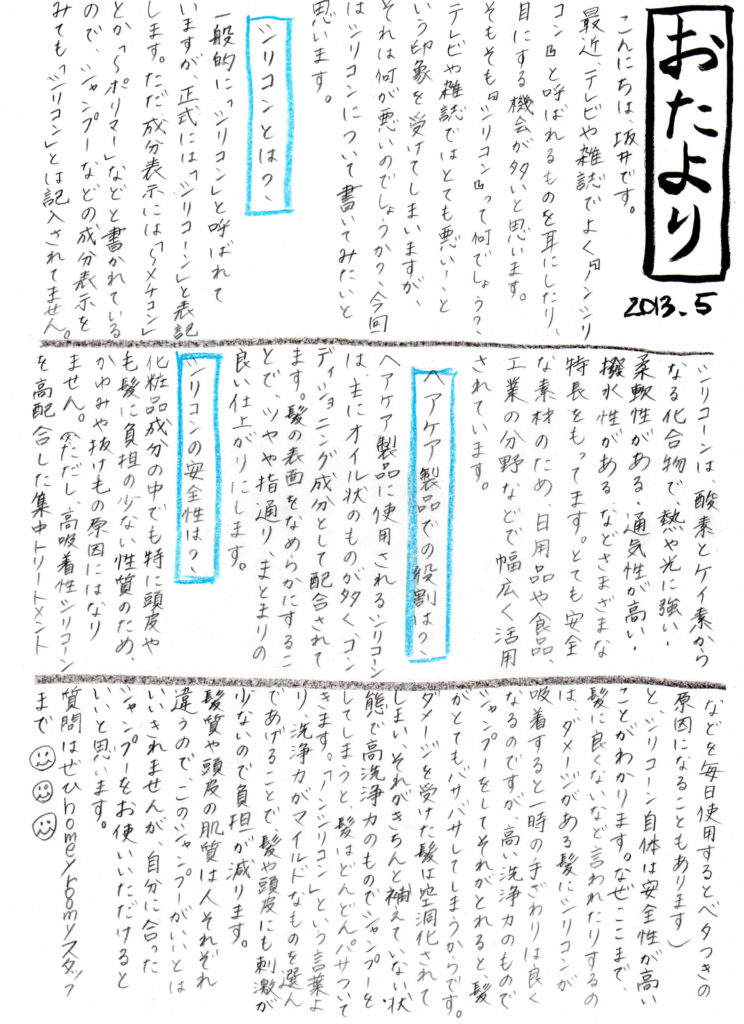 おたより
2013.5
こんにちは、坂井です。
最近、テレビや雑誌でよく『ノンシリ
コン』と呼ばれるものを耳にしたり、
目にする機会が多いと思います。
そもそも『シリコン』って何でしょう?、
テレビや雑誌ではとても悪い!、と
いう印象を受けてしまいますが、
それは何が悪いのでしょうか?、今回
はシリコンについて書いてみたいと
思います。
シリコンとは?、
一般的に「シリコン」と呼ばれて
いますが、正式には「シリコーン」と表記
します。ただ成分表示には「〜メチコン」
とか「〜ポリマー」などと書かれている
ので、シャンプーなどの成分表示を
みても「シリコン」とは記入されてません。
シリコーンは酸素とケイ素から
なる化合物で、熱や光に強い・
柔軟性がある・通気性が高い・
撥水性がある などさまざまな
特長をもってます。とても安全
な素材のため、日用品や食品、
工業の分野などで幅広く活用
されています。
ヘアケア製品での役割は?、
ヘアケア製品に使用されるシリコーン
は、主にオイル状のものが多く、コン
ディショニング成分として配合されて
ます。髪の表面をなめらかにするこ
とで、ツヤや指通り、まとまりの
良い仕上がりにします。
シリコンの安全性は?、
化粧品成分の中でも特に頭皮や
も髪に負担の少ない性質のため、
かゆみや抜けもの原因にはなり
ません。(ただし、高吸着性シリコーン
を高配合した集中トリートメント
などを毎日使用するとベタつきの
原因になることもあります)
と、シリコーン自体は安全性が高い
ことがわかります。なぜ、ここまで、
髪に良くないなど言われたりするの
は、ダメージがある髪にシリコンが
吸着すると一時の手ざわりは良く
なるのですが、高い洗浄力のもので
シャンプーをしてそれがとれると、髪
がとてもパサパサしてしまうからです。
ダメージを受けた髪は空洞化されて
しまい、それがきちんと補えていない状
態で高洗浄力のものでシャンプーを
してしまうと、髪はどんどんパサついて
きます。「ノンシリコン」という言葉よ
り、洗浄力がマイルドなものを選ん
であげることで、髪や頭皮にも刺激が
少ないので負担が減ります。
髪質や頭皮の肌質は人それぞれ
違うので、このシャンプーがいいとは
いいきれませんが、自分に合った
シャンプーをお使いいただけると
いいと思います。
質問はぜひhomeyroomyスタッフ
まで